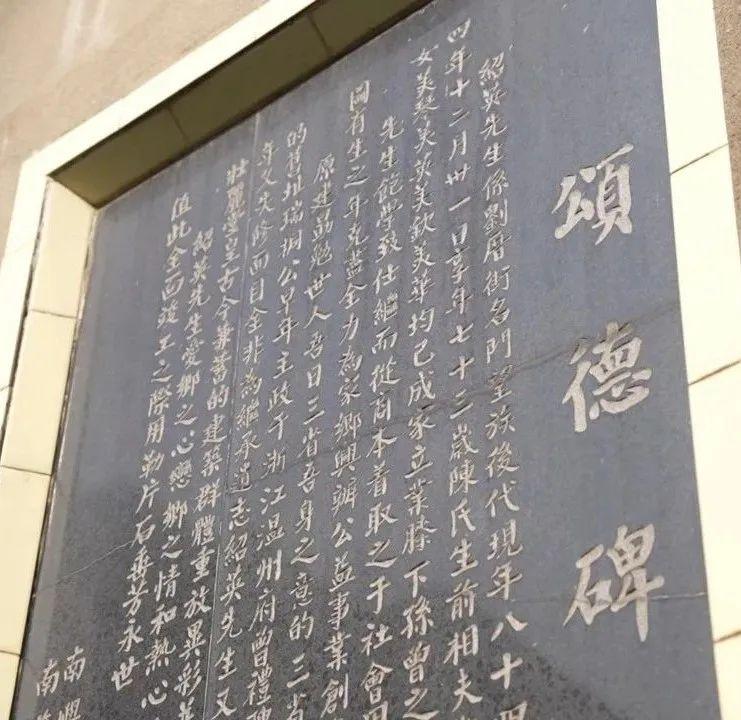 頌德碑
紹英先生係劉厝街名門望族後代現年八十四
四年十二月卅一日享年七十三歲陳氏生前相夫
女美琴美英美欽美華均已成家立業膝下孫曾之
先生飽學致仕繼而從商本着取之于社會用
圖有生之年克盡全力為家鄉興辦公益事業創
原建荔苑世人吾日三省吾身之意的三省
的舊址瑞桐公早年主政于浙江温州府曾禮聘
年久失修面目全非為繼承遺志紹英先生又
壯麗堂皇古今兼蓄的建築群體重放異彩
紹英先生愛鄉之心戀鄉之情和熱心
值此全面竣工之際用勒片石垂芳永世
南
南